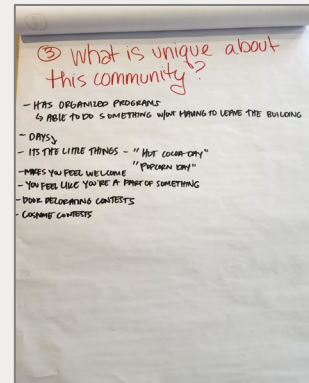 ③ What is unique about
this community?
- HAS ORGANIZED PROGRAMS
↳ ABLE TO DO SOMETHING W/OUT HAVING TO LEAVE THE BUILDING
- DAYS
- ITS THE LITTLE THINGS - "HOT COCOA DAY"
"POPCORN DAY"
- MAKES YOU FEEL WELCOME
- YOU FEEL LIKE YOU'RE A PART OF SOMETHING
- DOOR DECORATING CONTESTS
- CONTESTS